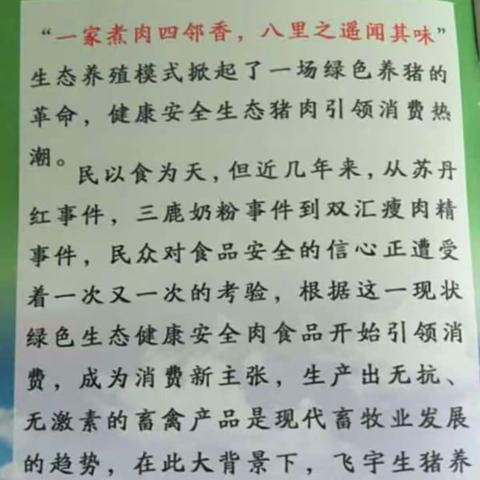 “一家煮肉四邻香，八里之遥闻其味”
生态养殖模式掀起了一场绿色养猪的
革命，健康安全生态猪肉引领消费热
潮。
民以食为天，但近几年来，从苏丹
红事件，三鹿奶粉事件到双汇瘦肉精
事件，民众对食品安全的信心正遭受
着一次又一次的考验，根据这一现状
绿色生态健康安全肉食品开始引领消
费，成为消费新主张，生产出无抗、
无激素的畜禽产品是现代畜牧业发展
的趋势，在此大背景下，飞宇生猪养